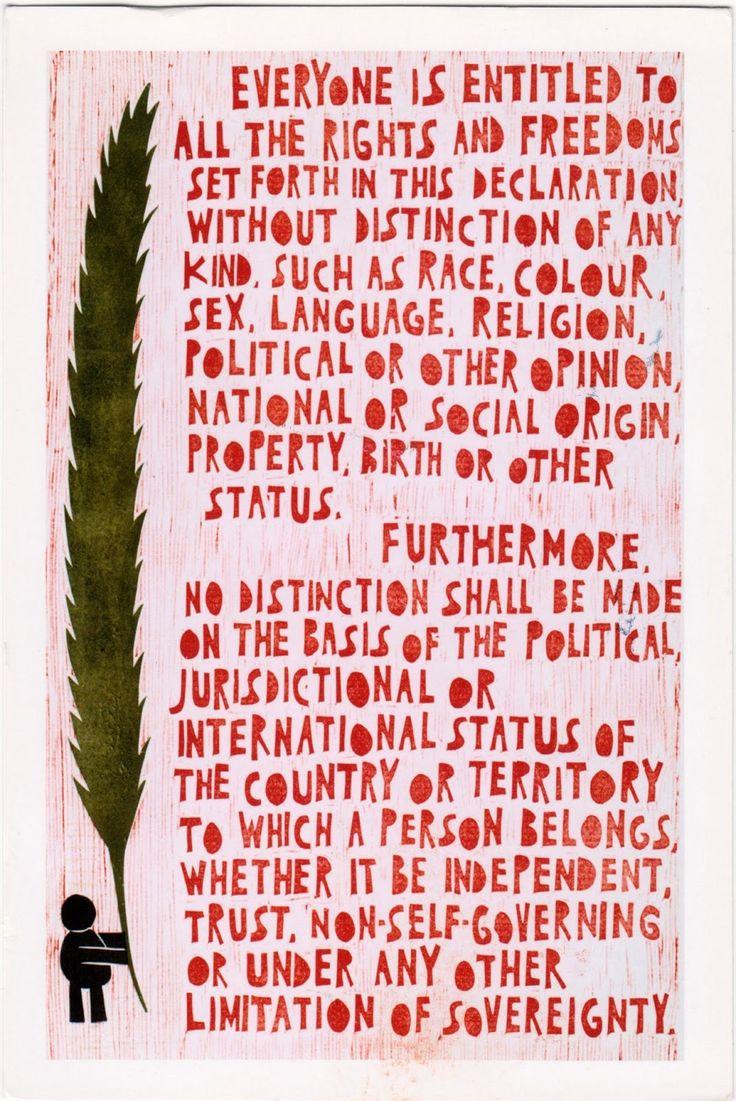 EVERYONE IS ENTITLED TO
ALL THE RIGHTS AND FREEDOMS
SET FORTH IN THIS DECLARATION,
WITHOUT DISTINCTION OF ANY
KIND, SUCH AS RACE, COLOUR,
SEX, LANGUAGE, RELIGION,
POLITICAL OR OTHER OPINION,
NATIONAL OR SOCIAL ORIGIN,
PROPERTY, BIRTH OR OTHER
STATUS.
FURTHERMORE,
NO DISTINCTION SHALL BE MADE
ON THE BASIS OF THE POLITICAL,
JURISDICTIONAL OR
INTERNATIONAL STATUS OF
THE COUNTRY OR TERRITORY
TO WHICH A PERSON BELONGS,
WHETHER IT BE INDEPENDENT,
TRUST, NON-SELF-GOVERNING
OR UNDER ANY OTHER
LIMITATION OF SOVEREIGNTY.